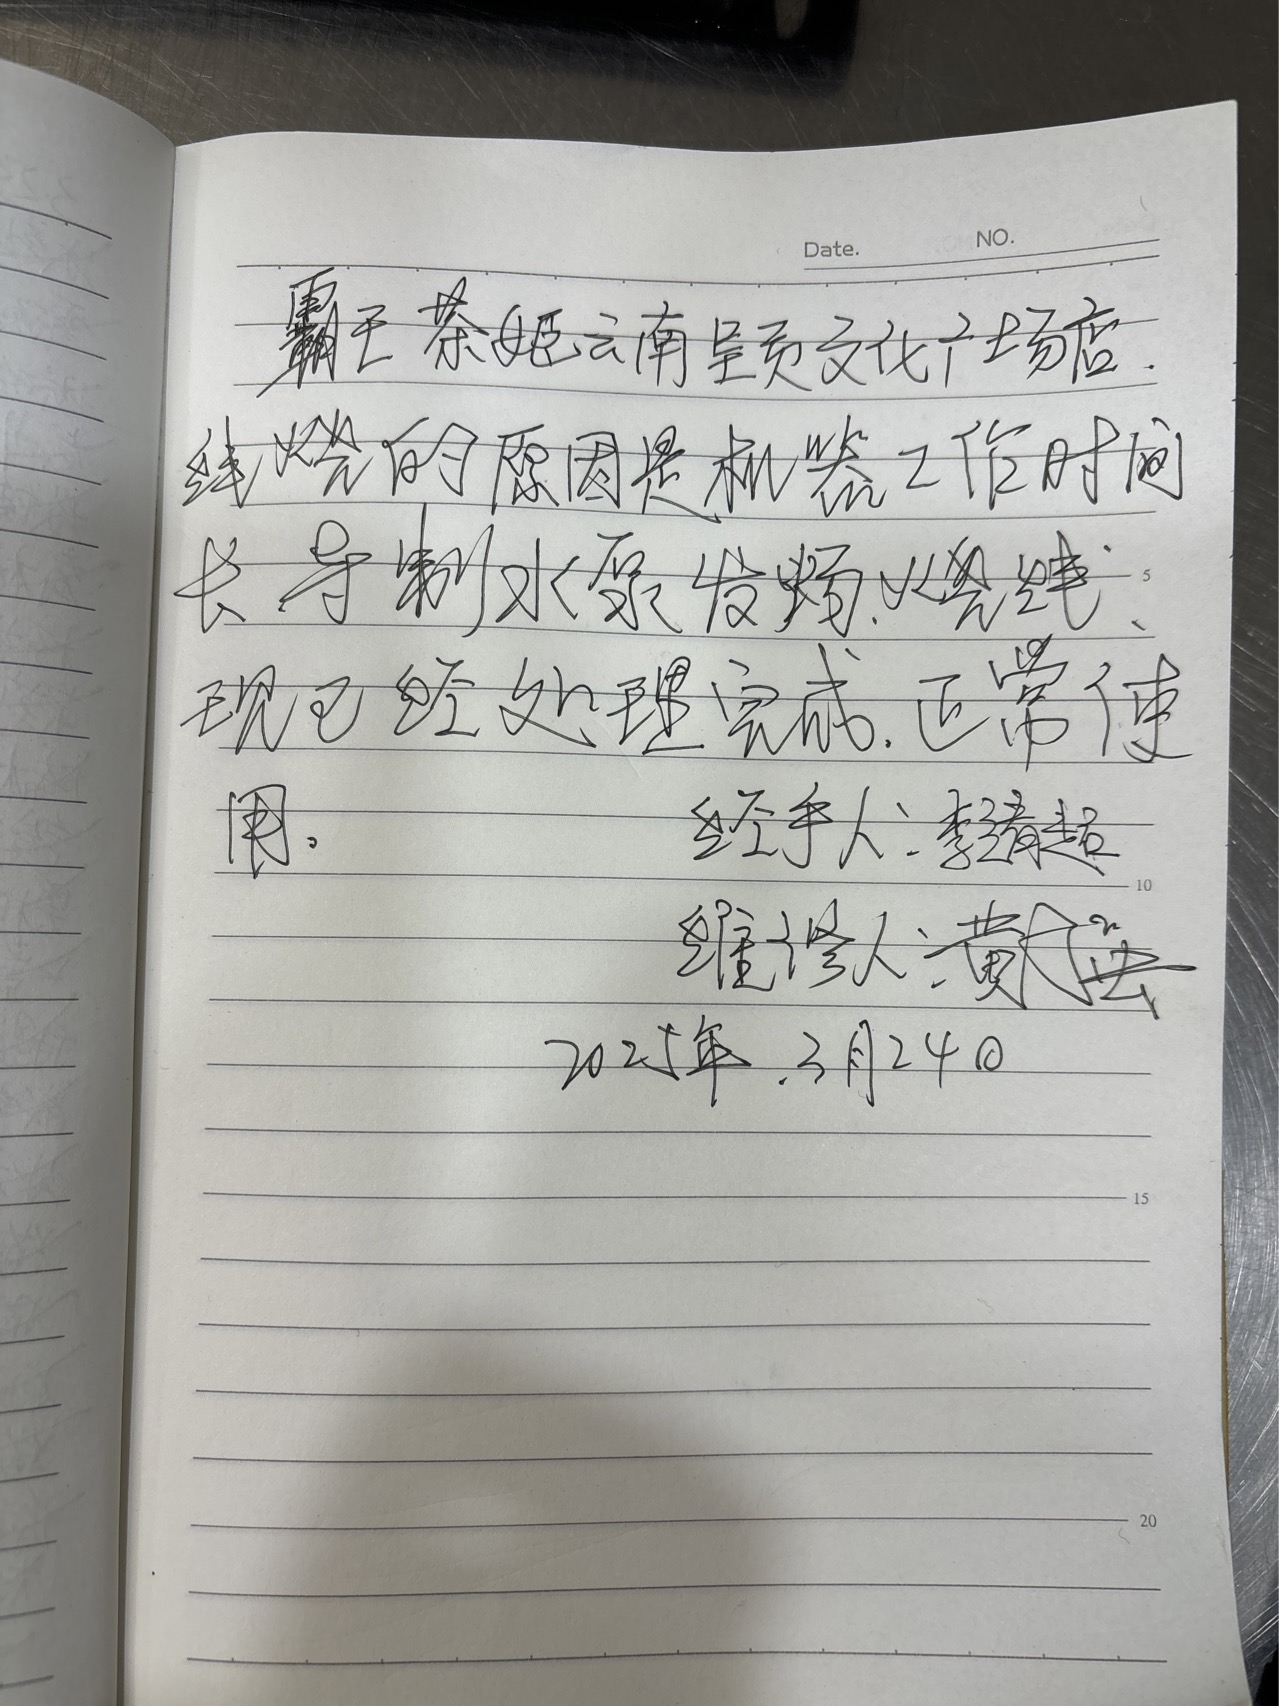 Date. NO.
霸王茶姬云南呈贡文化广场店.
线烧的原因是机器工作时间
长.导制水泵发烫.烧线.
现已经处理完成.正常使
用。 经手人:李靖超
维修人:黄
2025年.3月24日
5
10
15
20